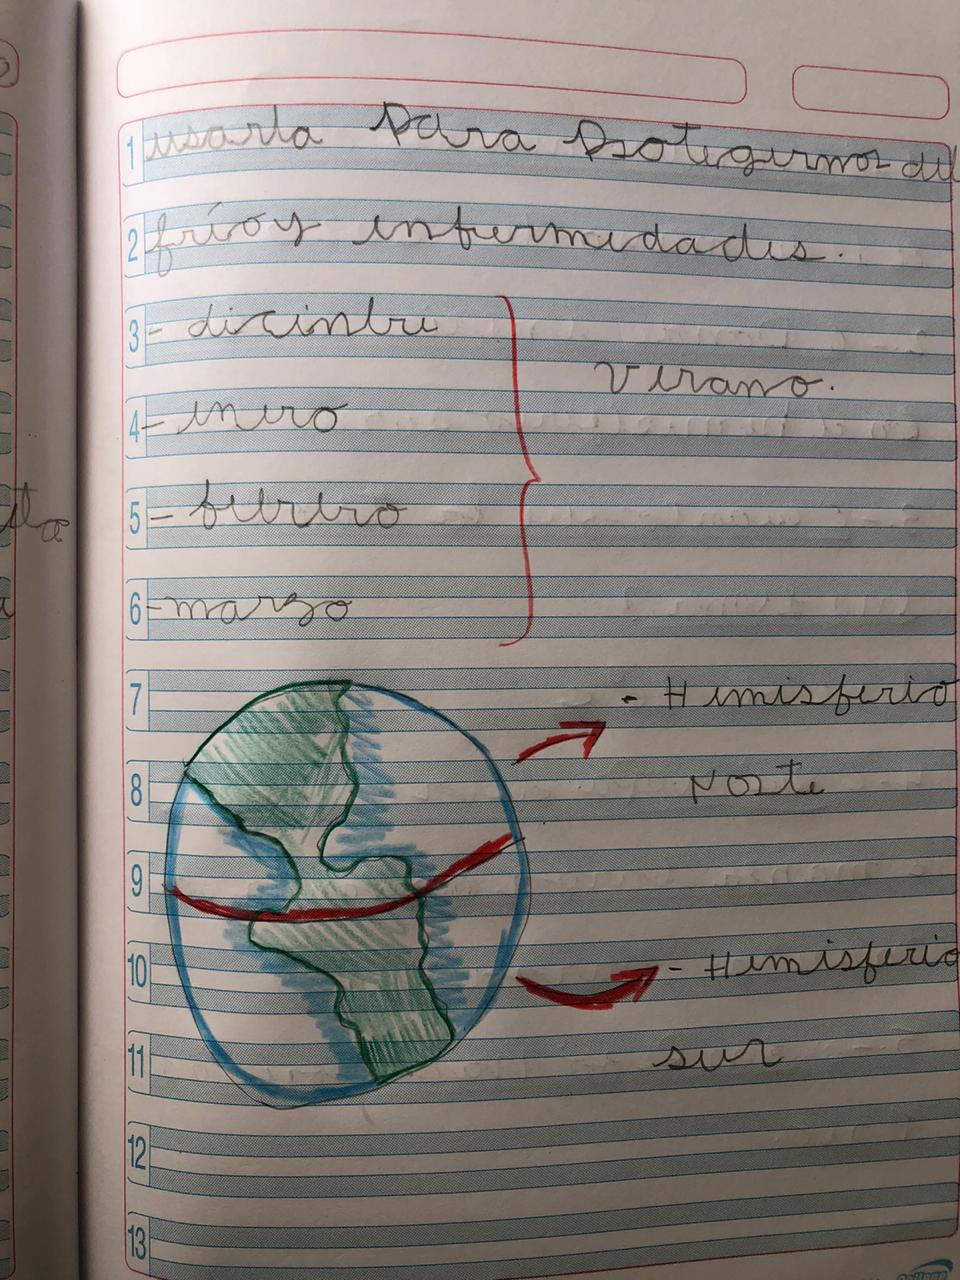 1 usarla para protegernos del
2 frío y enfermedades.
3 - dicienbre
Verano.
4 - enero
5 - febrero
6 - marzo
7 - Hemisferio
8 Norte
9
10 - Hemisferio
11 sur
12
13